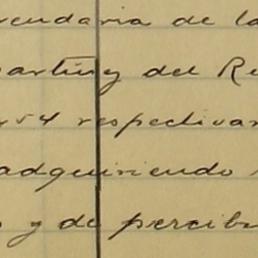 vendaria de la
Martin y del Re
454 respectivam
adquiriendo
y de percib